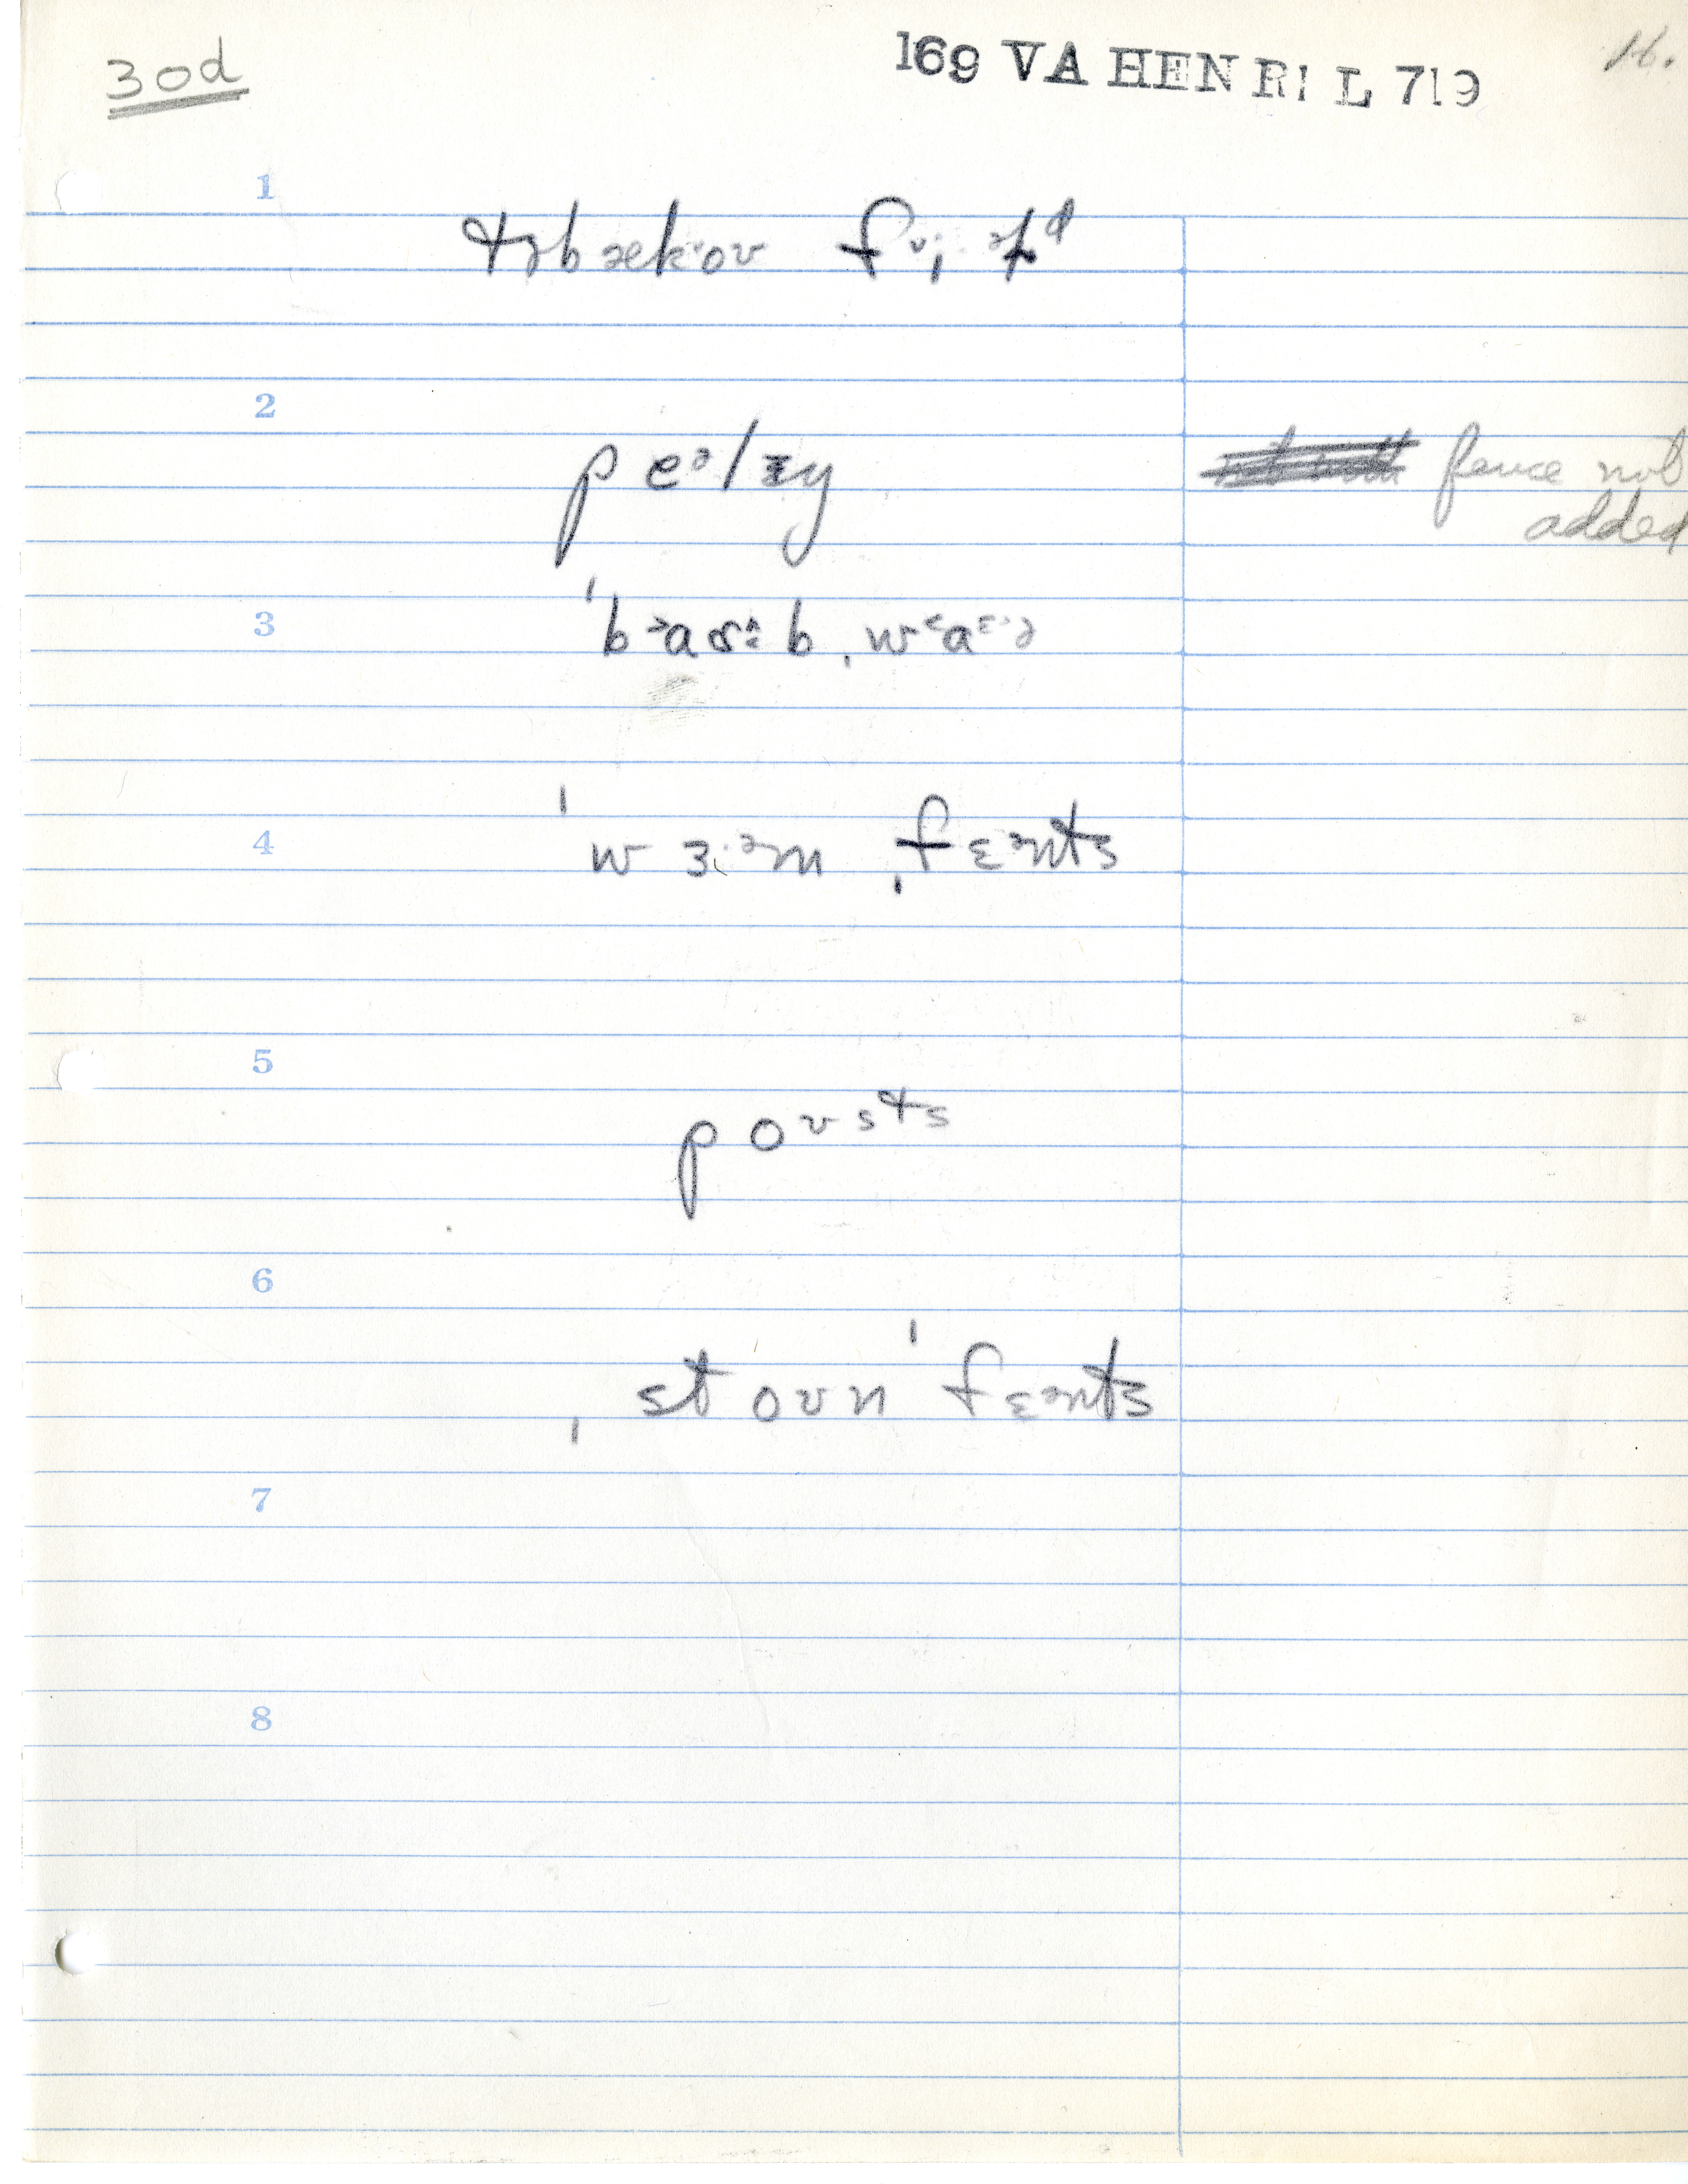 30d
169 VA HENRI L 719
16.
1
təbækoʊ
2
peᵊlɪŋ
fence not
added
3
4
ˈwɜːᵊmˌfɛᵊnts
5
poʊsts
6
ˌstoʊnˈfɛᵊnts
7
8